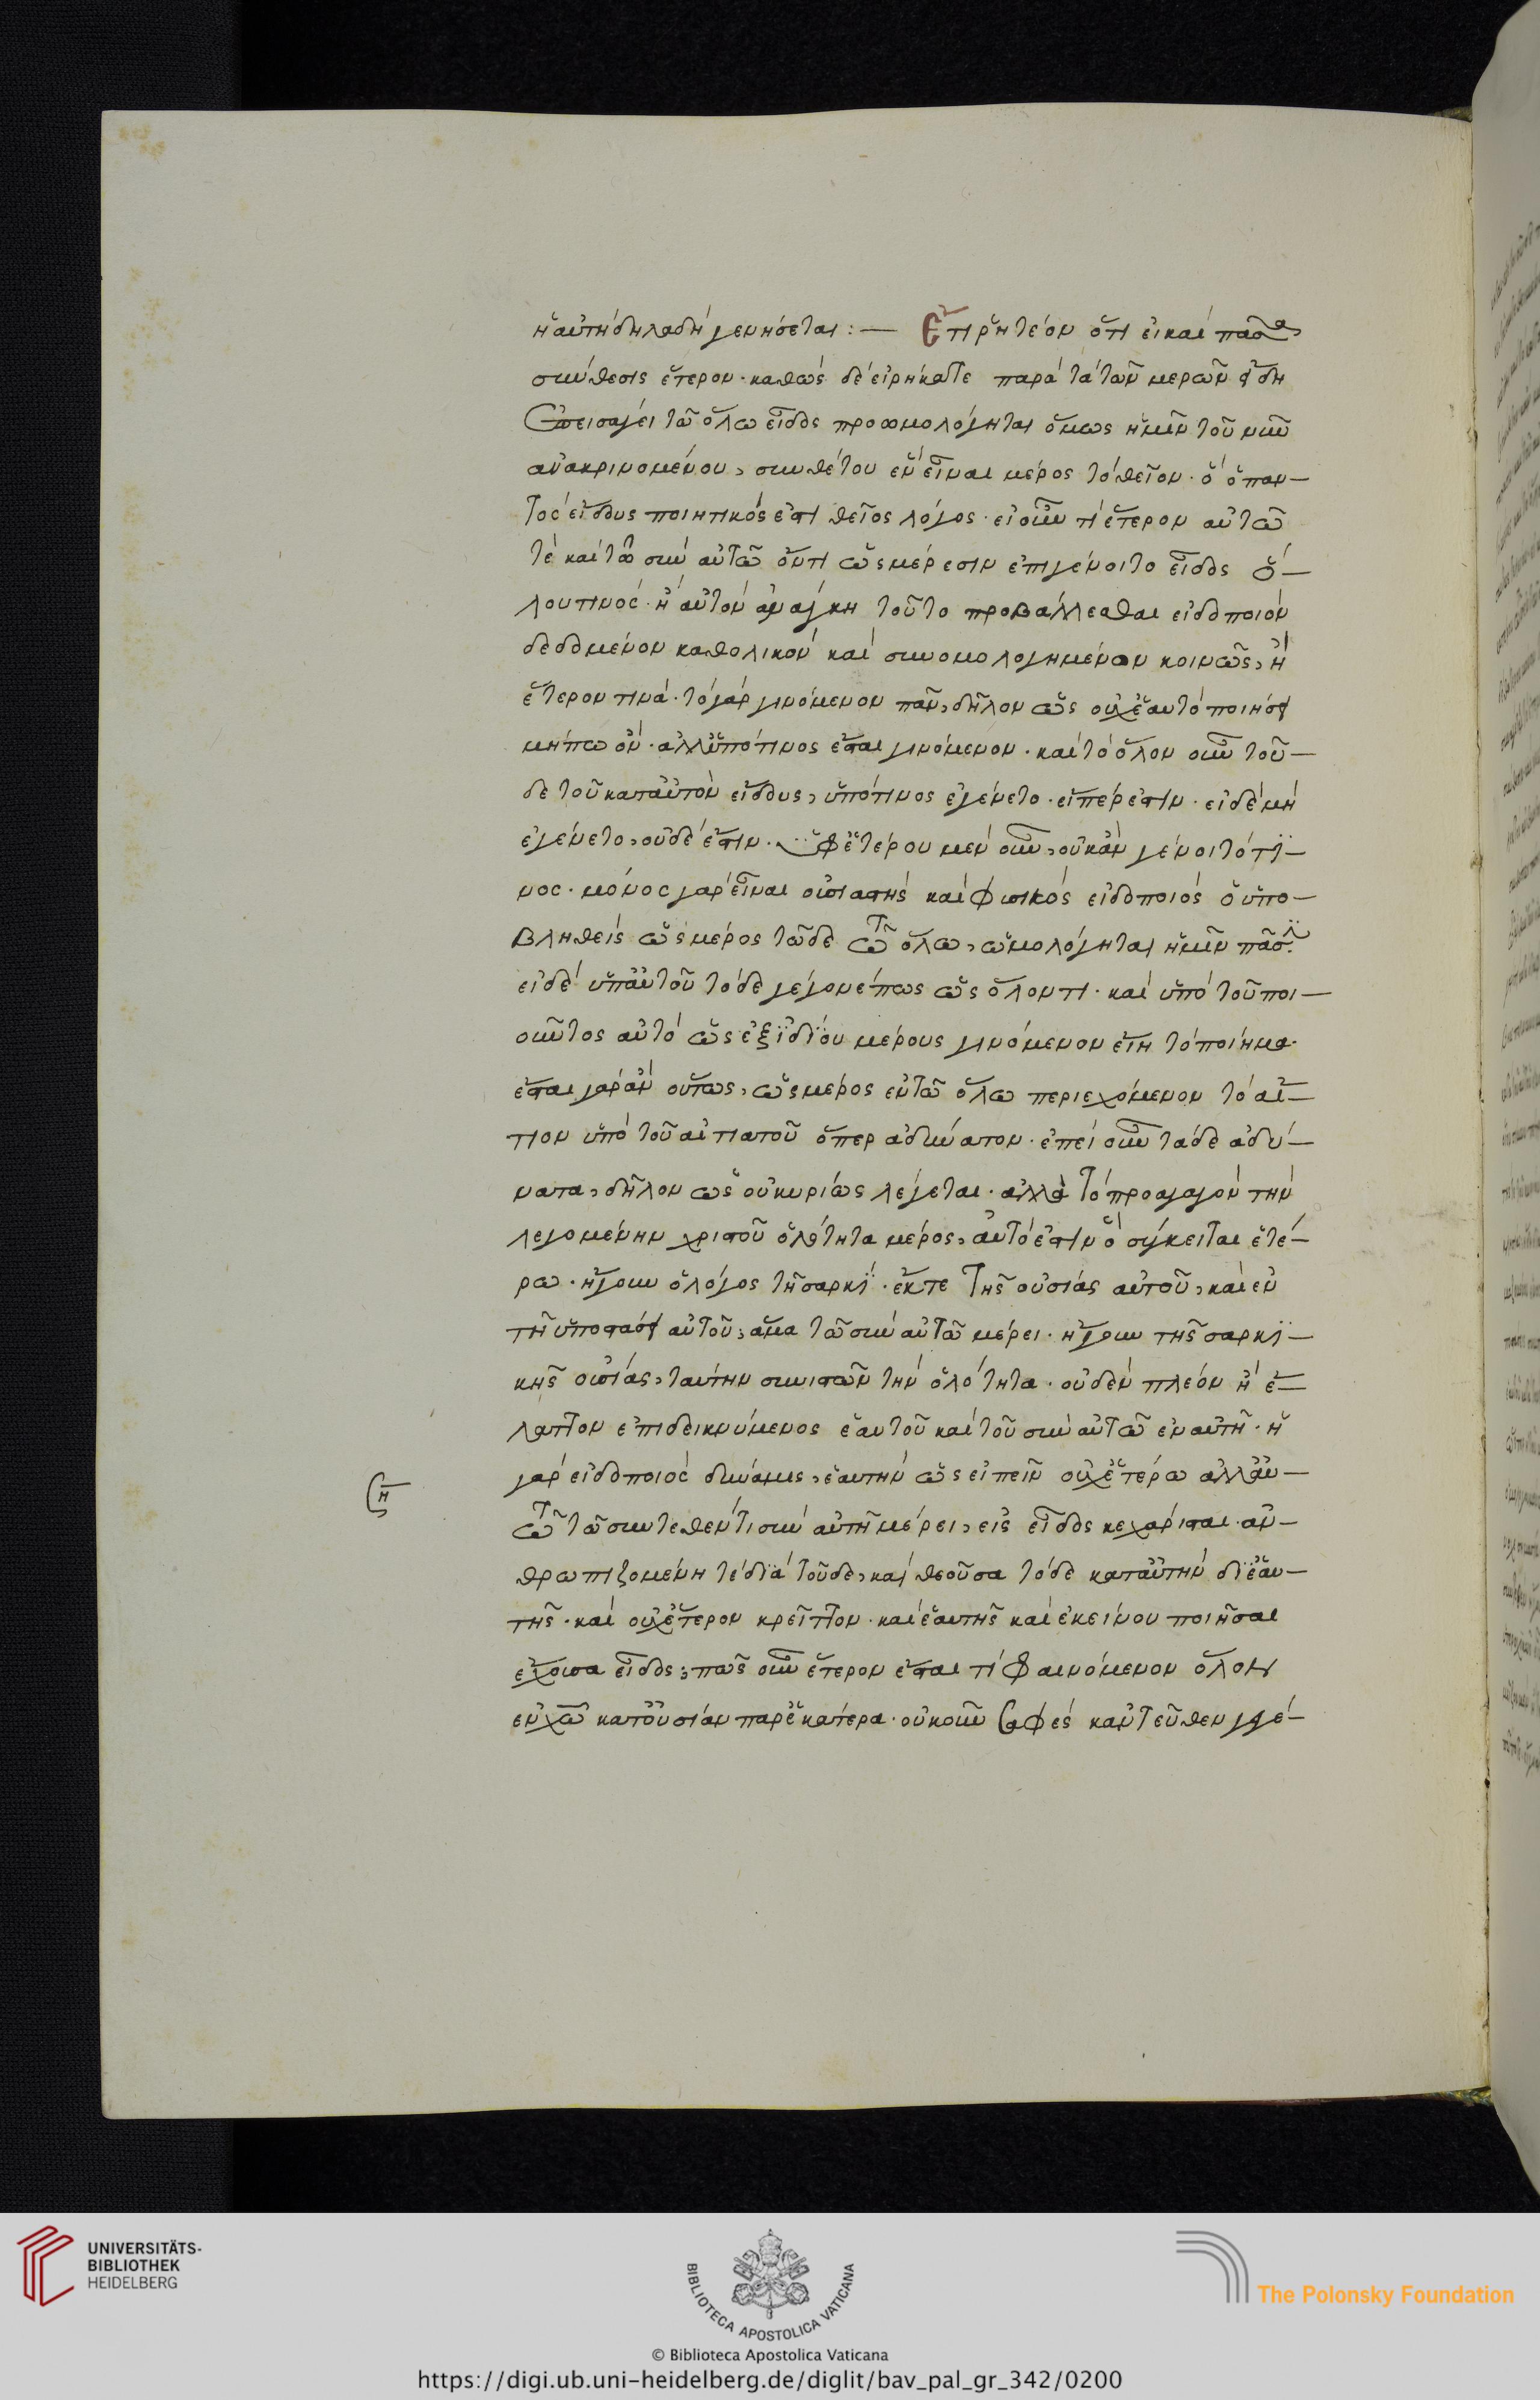 ἡ αὐτὴ δηλαδὴ γεννήσεται :— Ἔτι ῥητέον ὅτι εἰ καὶ πᾶσα
σύνθεσις ἕτερον · καθὼς δὲ εἰρήκατε παρὰ τὰ τῶν μερῶν εἴδη
ἐπεισάγει τῶ ὅλω εἶδος προωμολόγηται ὅμως ἡμῖν τοῦ νῦν
ἀνακρινομένου, συνθέτου ἓν εἶναι μέρος τὸ θεῖον · ὃ ὁ παν—
τὸς εἴδους ποιητικός ἐστι θεῖος λόγος · εἰ οὖν τι ἕτερον αὐτῶ
τὲ καὶ τῶ σὺν αὐτῶ ὄντι ὡς μέρεσιν ἐπιγένοιτο εἶδος ὅ—
λου τινὸς · ἢ αὐτὸν ἀνάγκη τοῦτο προβάλλεσθαι εἰδοποιὸν
δεδομένον καθολικὸν καὶ συνομολογημένον κοινῶς, ἢ
ἕτερον τινά · τὸ γὰρ γινόμενον πᾶν, δῆλον ὡς οὐχ ἑαυτὸ ποιήσει
μήπω ὄν · ἀλλ' ὑπό τινος ἔσται γινόμενον · καὶ τὸ ὅλον οὖν τοῦ—
δε τοῦ κατ' αὐτὸν εἴδους, ὑπό τινος ἐγένετο · εἴπερ ἔστιν · εἰ δὲ μὴ
ἐγένετο, οὐδὲ ἔστιν · ὑφ' ἑτέρου μὲν οὖν, οὐκ ἂν γένοιτό τι—
νος · μόνος γὰρ εἶναι οὐσιαστὴς καὶ φυσικὸς εἰδοποιὸς ὁ ὑπο—
βληθεὶς ὡς μέρος τῶδε τῶ ὅλω, ὡμολόγηται ἡμῖν πᾶσιν ·
εἰ δὲ ὑπ' αὐτοῦ τόδε γέγονέ πως ὡς ὅλον τι · καὶ ὑπὸ τοῦ ποι—
οῦντος αὐτὸ ὡς ἐξ ἰδίου μέρους γινόμενον ἔτι τὸ ποίημα ·
ἔσται γὰρ ἂν οὕτως, ὡς μέρος ἐν τῶ ὅλω περιεχόμενον τὸ αἴ—
τιον ὑπὸ τοῦ αἰτιατοῦ ὅπερ ἀδύνατον · ἐπεὶ οὖν τάδε ἀδύ—
νατα, δῆλον ὡς οὐ κυρίως λέγεται · ἀλλὰ τὸ προαγαγὸν τὴν
λεγομένην χριστοῦ ὁλότητα μέρος, αὐτό ἐστιν ὃ σύγκειται ἑτέ—
ρω · ἤγουν ὁ λόγος τῆ σαρκὶ · ἔκ τε τῆς οὐσίας αὐτοῦ, καὶ ἐν
τῆ ὑποστάσει αὐτοῦ, ἅμα τῶ σὺν αὐτῶ μέρει · ἤγουν τῆς σαρκι—
κῆς οὐσίας, ταύτην συνιστῶν τὴν ὁλότητα · οὐδὲν πλέον ἢ ἔ—
λαττον ἐπιδεικνύμενος ἑαυτοῦ καὶ τοῦ σὺν αὐτῶ ἐν αὐτῆ · ἡ
γὰρ εἰδοποιὸς δύναμις, ἑαυτὴν ὡς εἰπεῖν οὐχ ἑτέρω ἀλλ' αὐ—
τῶ τῶ συντεθέντι σὺν αὐτῆ μέρει, εἰς εἶδος κεχάρισται · ἀν—
θρωπιζομένη τὲ διὰ τοῦδε, καὶ θεοῦσα τόδε κατ' αὐτὴν δι' ἑαυ—
τῆς · καὶ οὐχ ἕτερον κρεῖττον · καὶ ἑαυτῆς καὶ ἐκείνου ποιῆσαι
ἔχουσα εἶδος; πῶς οὖν ἕτερον ἔσται τί φαινόμενον ὅλον
ἐν χῶ κατ' οὐσίαν παρ' ἑκάτερα · οὐκοῦν σαφὲς κἀντεῦθεν γέ—
UNIVERSITÄTS-
BIBLIOTHEK
HEIDELBERG
BIBLIOTECA APOSTOLICA VATICANA
The Polonsky Foundation
© Biblioteca Apostolica Vaticana
https://digi.ub.uni-heidelberg.de/diglit/bav_pal_gr_342/0200